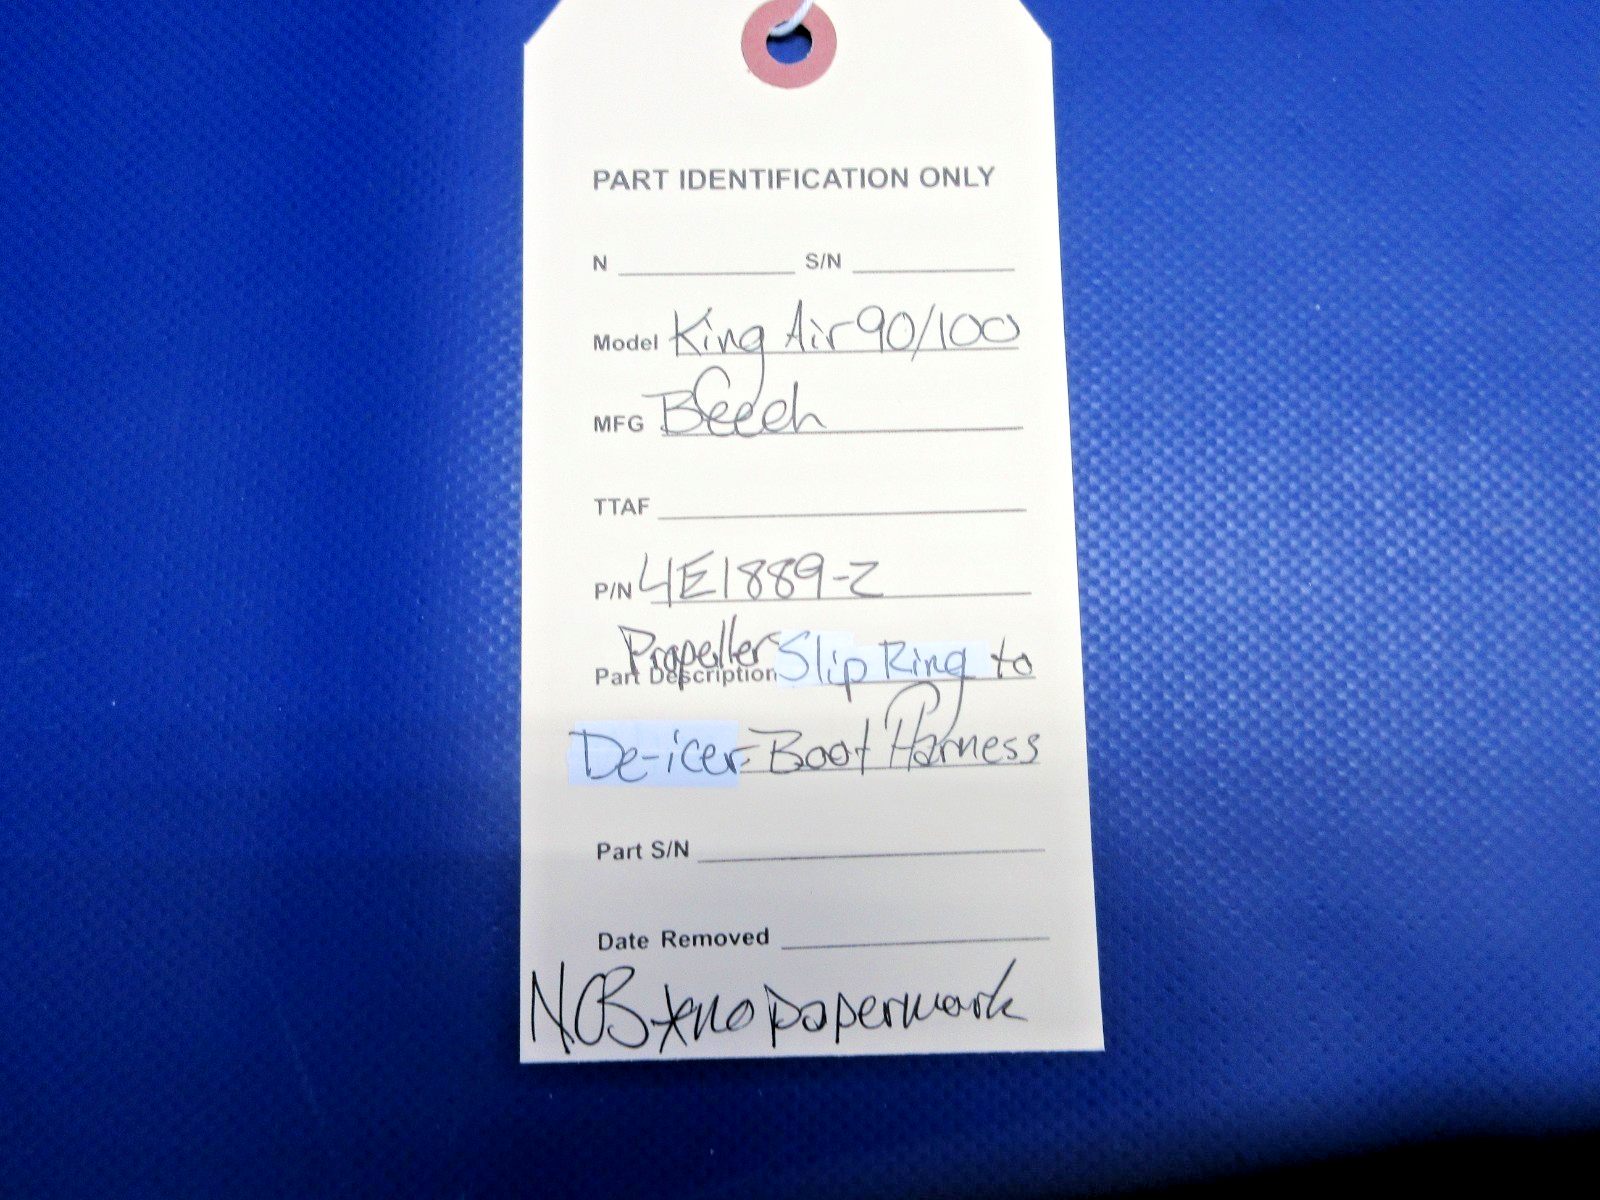 PART IDENTIFICATION ONLY
N S/N
Model King Air 90/100
MFG Beech
TTAF
P/N 4E1889-2
Propeller
Part Description Slip Ring to
De-icer-Boot Harness
Part S/N
Date Removed
NOS *no paperwork